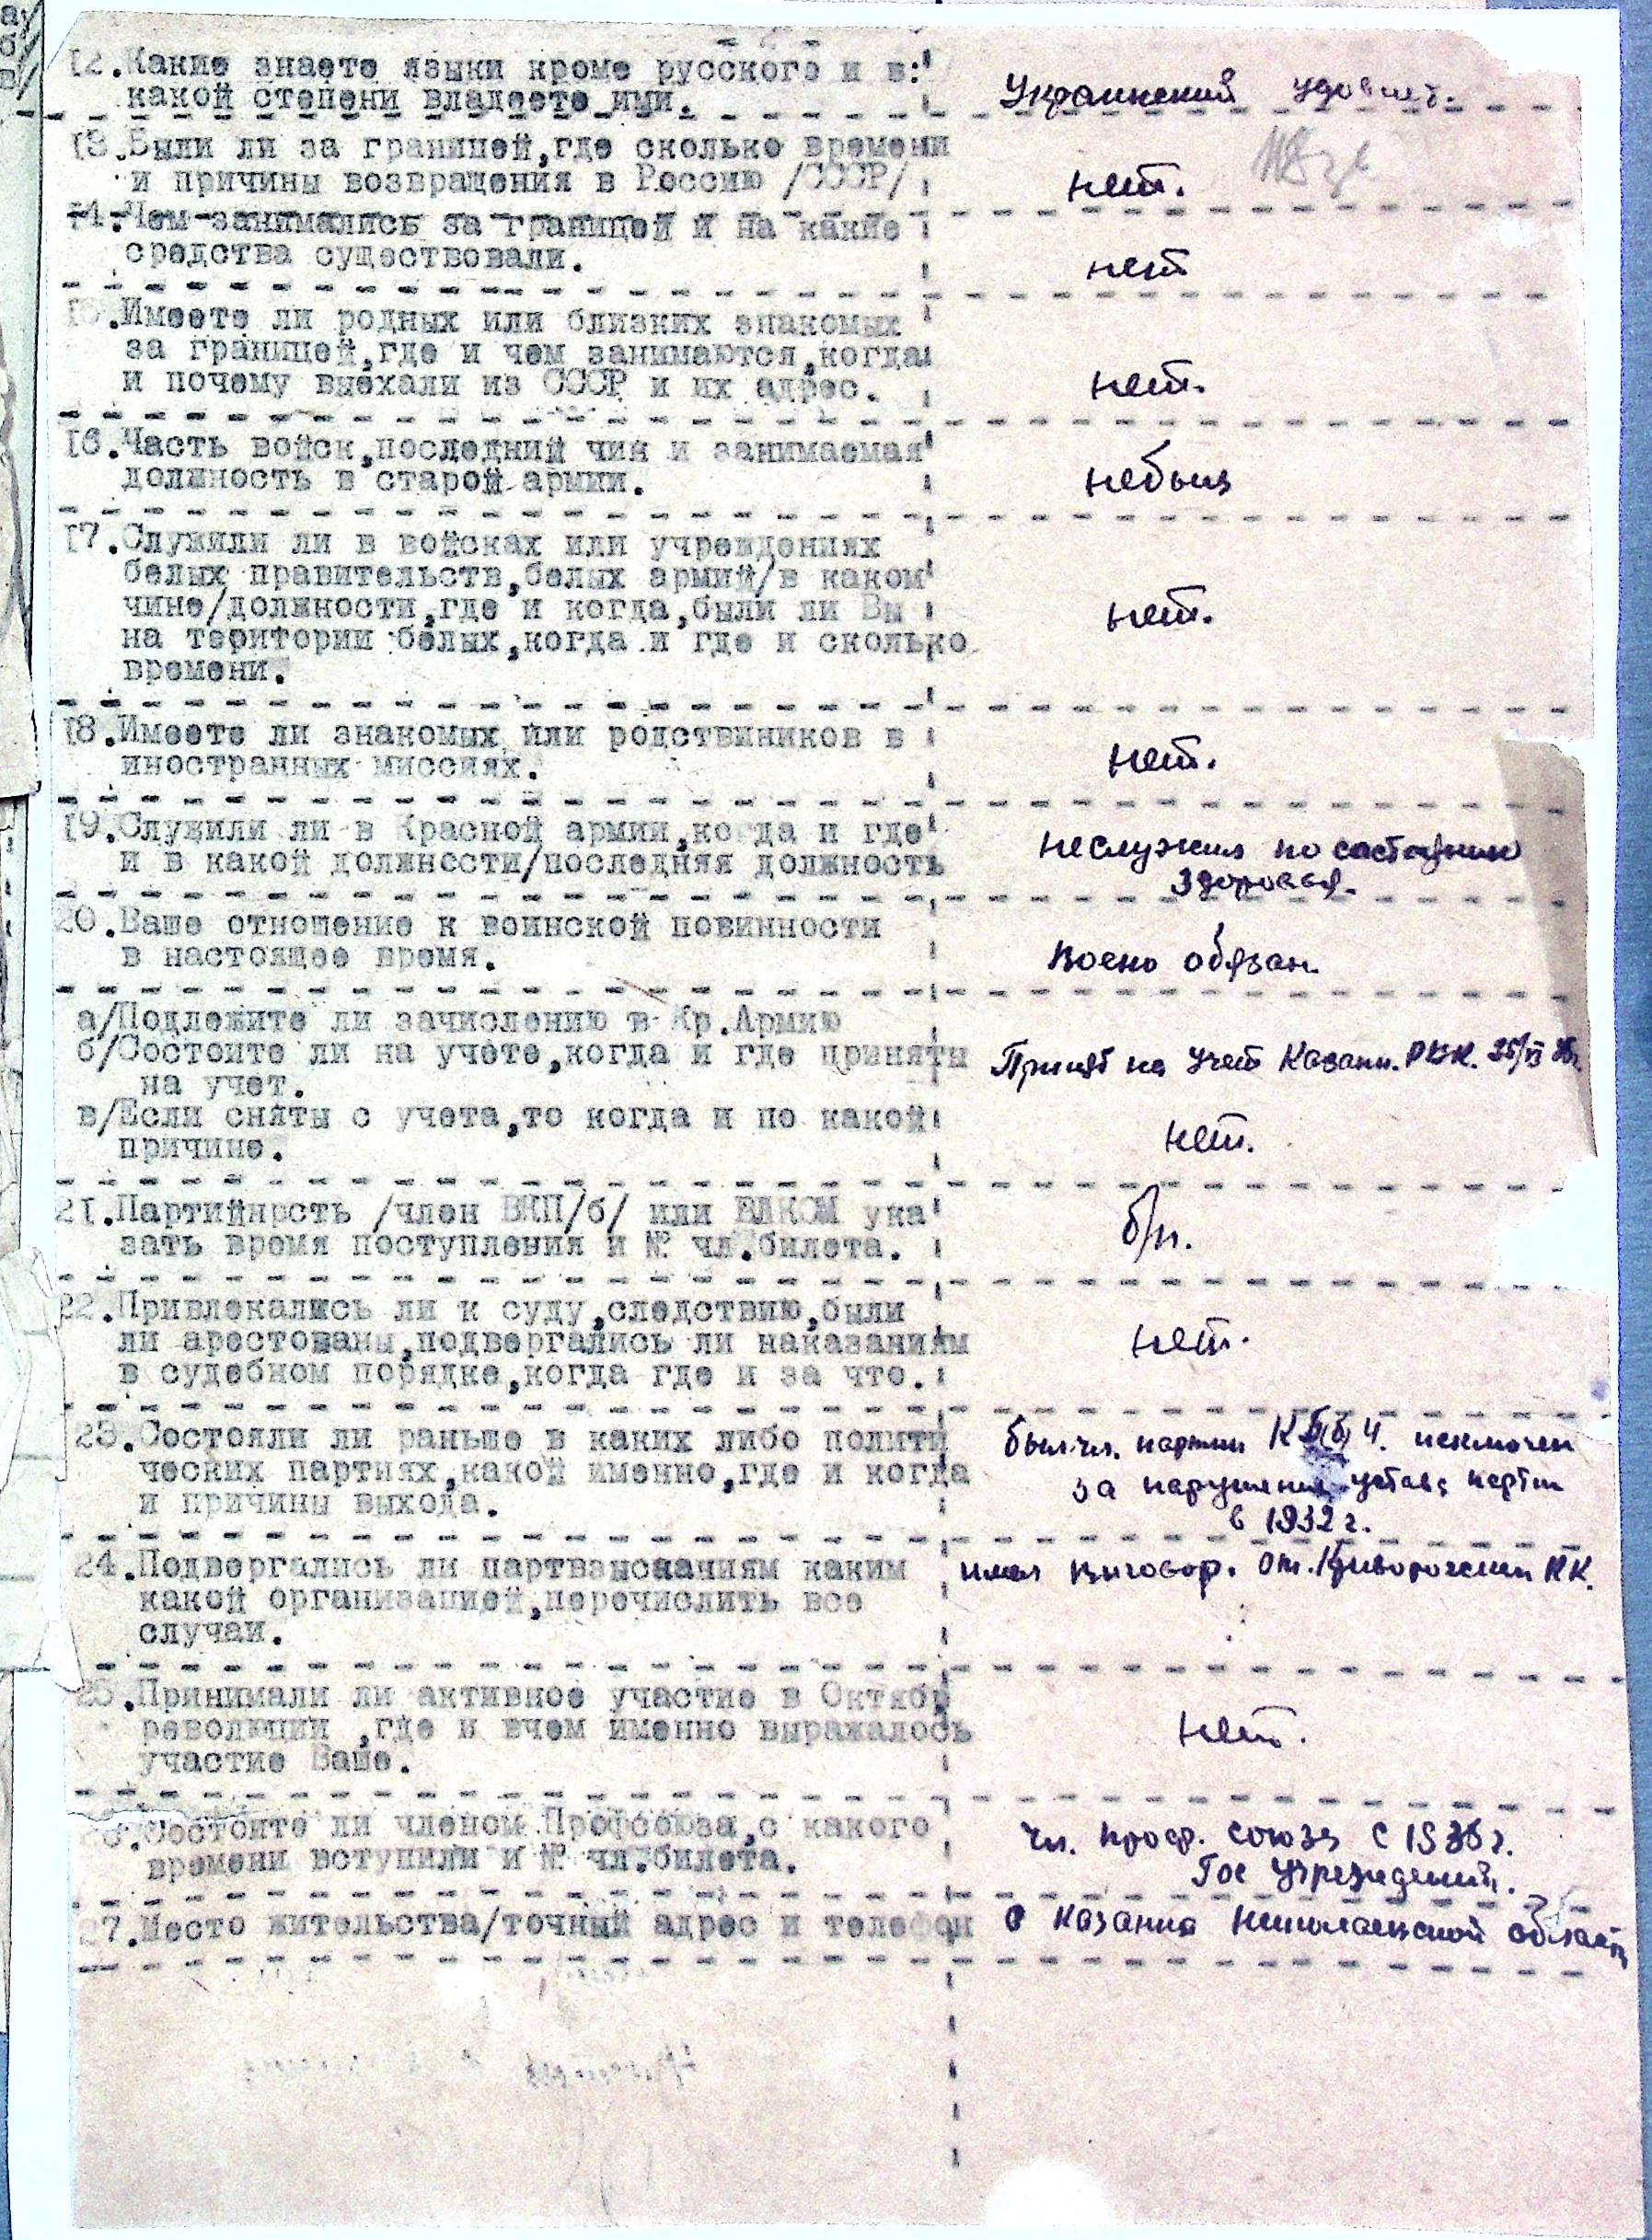 12.Какие знаете языки кроме русского и в:
какой степени владеете ими.
Украинский удовлет.
13.Были ли за границей,где сколько времени
и причины возвращения в Россию /СССР/
нет.
14.Чем занимались за границей и на какие
средства существовали.
нет
15.Имеете ли родных или близких знакомых
за границей,где и чем занимаются,когда
и почему выехали из СССР и их адрес.
нет.
16.Часть войск,последний чин и занимаемая
должность в старой армии.
небыл
17.Служили ли в войсках или учреждениях
белых правительств,белых армий/в каком
чине/должности,где и когда,были ли Вы
на територии белых,когда и где и сколько
времени.
нет.
18.Имеете ли знакомых или родствиников в
иностранных миссиях.
нет.
19.Служили ли в Красной армии,когда и где
и в какой должности/последняя должность
неслужил по состоянию
здоровья.
20.Ваше отношение к воинской повинности
в настоящее время.
Воено обязан.
а/Подлежите ли зачислению в Кр.Армию
б/Состоите ли на учете,когда и где приняты
на учет.
Принят на учет Казанк. РВК. 25/VI
в/Если сняты с учета,то когда и по какой
причине.
нет.
21.Партийнрсть /член ВКП/б/ или ВЛКСМ ука
зать время поступления и № чл.билета.
б/п.
22.Привлекались ли к суду,следствию,были
ли арестованы,подвергались ли наказаниям
в судебном порядке,когда где и за что.
нет.
23.Состояли ли раньше в каких либо полити
ческих партиях,какой именно,где и когда
и причины выхода.
был чл. партии исключен
за нарушения устава партии
в 1932 г.
24.Подвергались ли партвзысканиям каким
какой организацией,перечислить все
случаи.
имел выговор. от. Криворожский РК.
25.Принимали ли активное участие в Октябр
революции ,где и вчем именно выражалось
участие Ваше.
нет.
26.Состоите ли членом Профсоюза,с какого
времени вступили и № чл.билета.
чл. проф. союза с 1936 г.
Гос Учреждений.
27.Место жительства/точный адрес и телефон
с Казанка Николаевской области